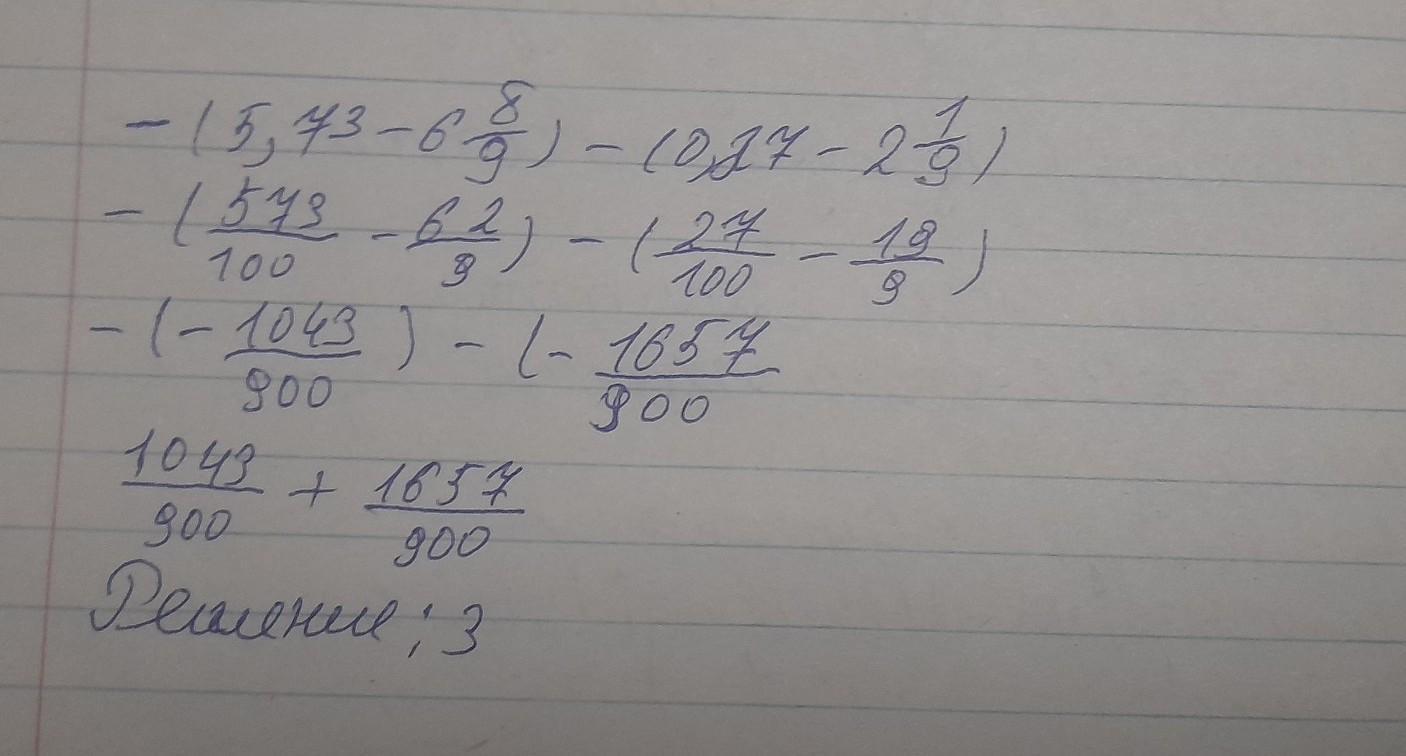 -(5,73-6 8/9)-(0,27-2 1/9)
-(573/100-62/9)-(27/100-19/9)
-(-1043/900)-(-1657/900
1043/900+1657/900
Решение: 3